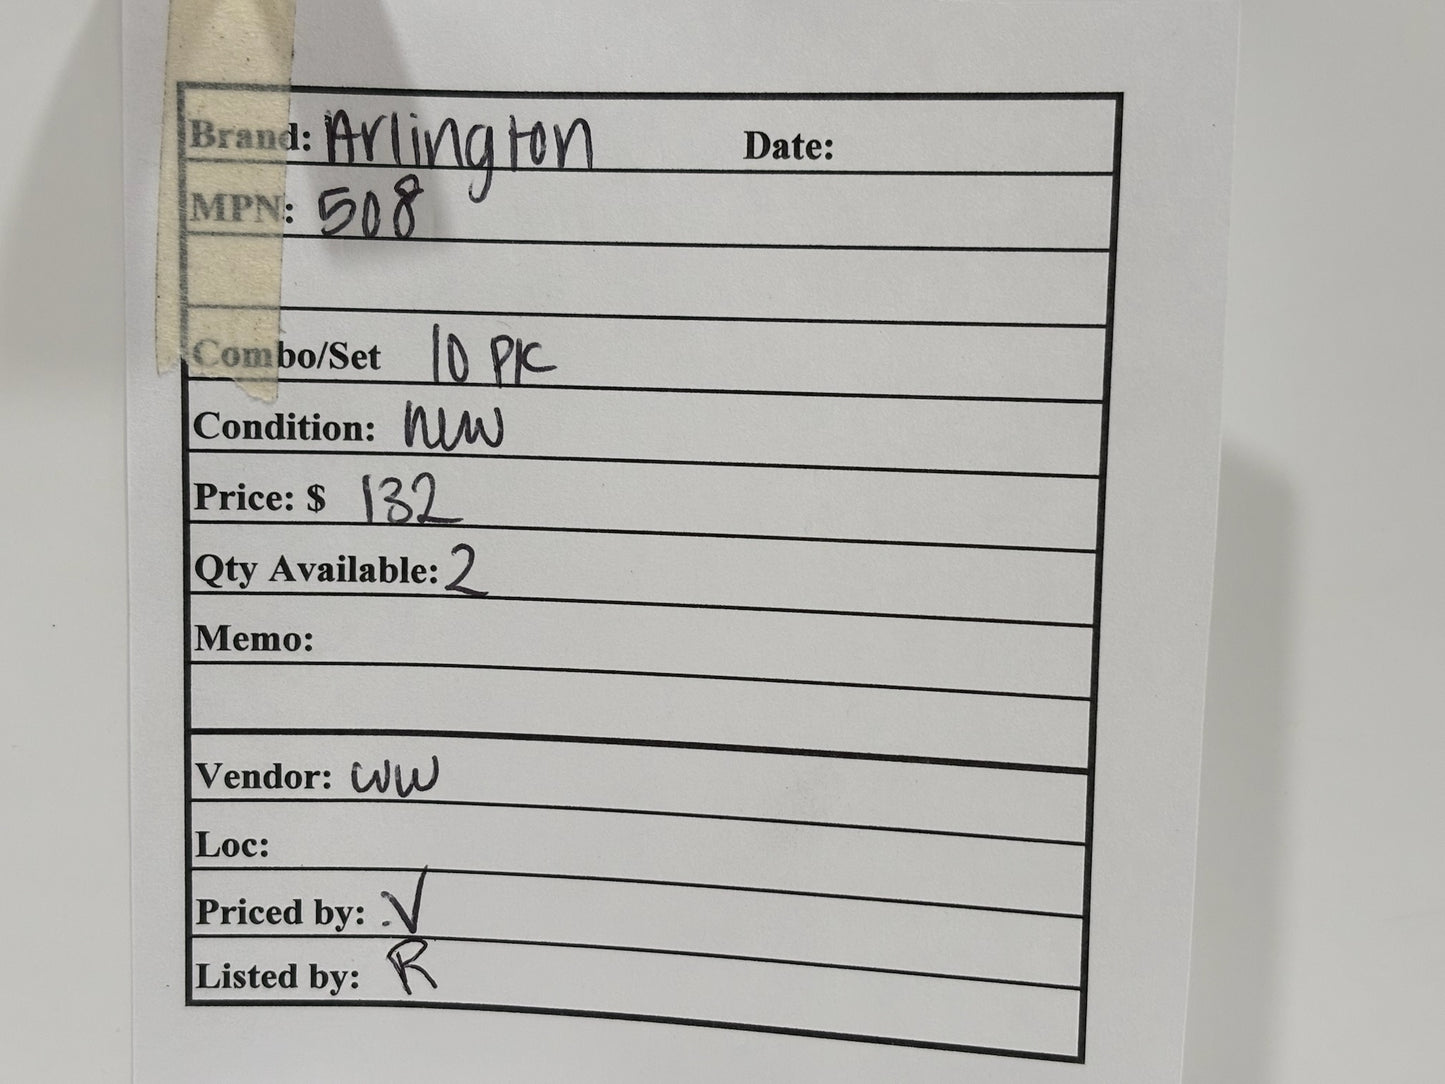 Brand: Arlington Date:
MPN: 508
Combo/Set 10 PK
Condition: new
Price: $ 132
Qty Available: 2
Memo:
Vendor: WW
Loc:
Priced by: V
Listed by: R